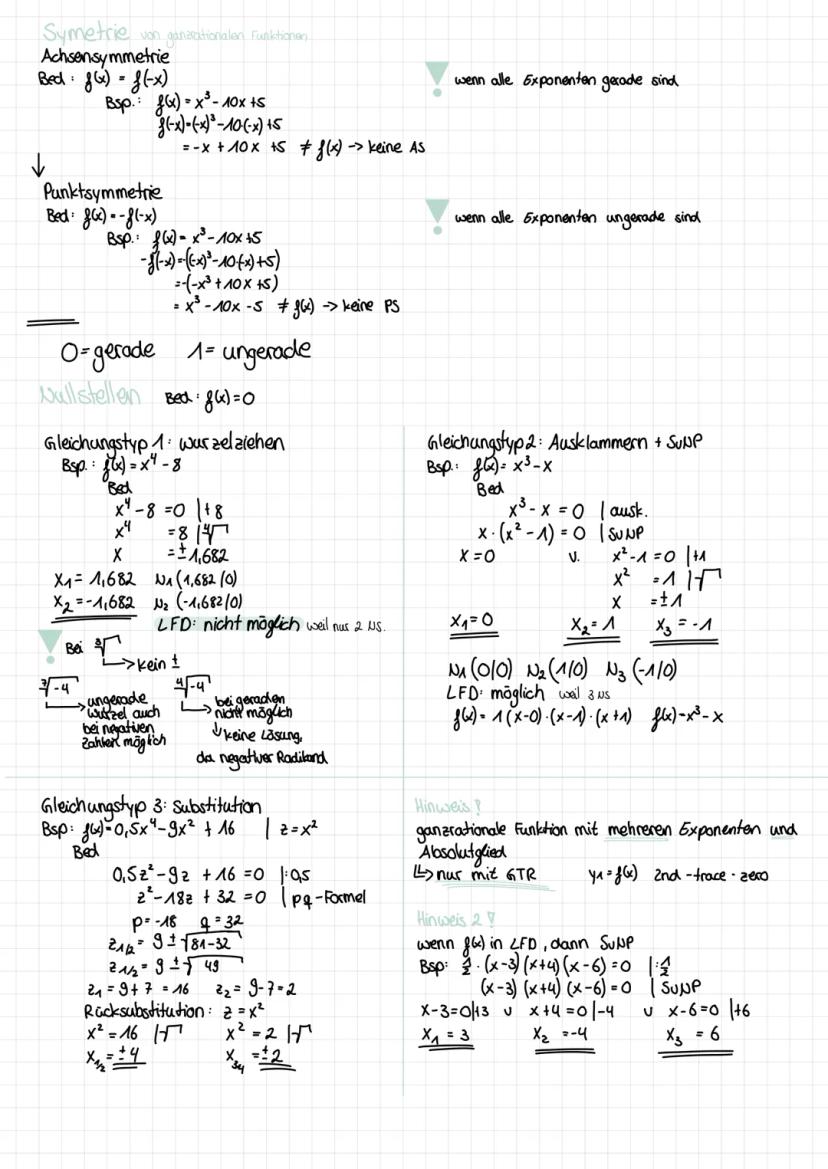 Symetrie von ganzrationalen Funktionen
Achsensymmetrie
Bed: f(x) = f(-x)
wenn alle Exponenten gerade sind
Bsp.: f(x) = x³ - 10x +5
f(-x)=(-x)³ -10·(-x) +5
= -x + 10x +5 ≠ f(x) -> keine AS
↓
Punktsymmetrie
Bed: f(x) = -f(-x)
wenn alle Exponenten ungerade sind
Bsp.: f(x) = x³ - 10x +5
-f(-x)=-((-x)³-10·(-x)+5)
=-(-x³ +10x +5)
= x³ -10x -5 ≠ f(x) -> keine PS
0=gerade 1= ungerade
Nullstellen Bed: f(x)=0
Gleichungstyp 1: wurzelziehen
Bsp.: f(x) = x⁴ - 8
Bed
x⁴ - 8 =0 |+8
x⁴ =8 |⁴√
x =±1,682
x₁= 1,682 N₁ (1,682/0)
x₂=-1,682 N₂ (-1,682/0)
LFD: nicht möglich weil nur 2 NS.
Bei ³√
->kein ±
³√-4 ⁴√-4
ungerade wurzel auch bei negativen Zahlen möglich
bei geraden nicht möglich
↓ keine Lösung,
da negativer Radikand
Gleichungstyp 2: Ausklammern + SuNP
Bsp.: f(x)= x³-x
Bed
x³ - x = 0 | ausk.
x·(x² -1) = 0 | SuNP
x =0 v. x²-1 =0 |+1
x² =1 |√
x =±1
x₁=0 x₂= 1 x₃ = -1
N₁ (0/0) N₂ (1/0) N₃ (-1/0)
LFD: möglich weil 3 NS
f(x)= 1(x-0)·(x-1)·(x+1) f(x)=x³-x
Gleichungstyp 3: Substitution
Bsp: f(x)=0,5x⁴-9x² + 16 | z=x²
Bed
0,5z²-9z +16 =0 |:0,5
z²-18z + 32 =0 | pq-Formel
p=-18 q=32
z₁/₂= 9 ± √81-32
z₁/₂= 9 ± √49
z₁ = 9+7 =16 z₂= 9-7=2
Rücksubstitution: z =x²
x²=16 |√ x²=2 |√
x₁/₂=±4 x₃/₄=±2
Hinweis !
ganzrationale Funktion mit mehreren Exponenten und
Absolutglied
↳ nur mit GTR y₁=f(x) 2nd -trace - zero
Hinweis 2 !
wenn f(x) in LFD, dann SuNP
Bsp: ½·(x-3)(x+4)(x-6)=0 |:½
(x-3)(x+4)(x-6)=0 | SuNP
x-3=0|+3 v x+4=0|-4 v x-6=0 |+6
x₁ = 3 x₂ =-4 x₃ = 6